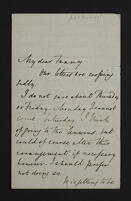 My dear Fanny
Our letters are crossing
sadly.
I do not care about Thursday
or Friday. Sunday I cannot
come. Saturday I think
of going to the
could of course alter this
arrangement if necessary
however I should prefer
not doing so.
It is getting to be